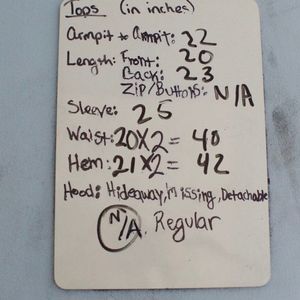 Tops (in inches)
armpit to armpit: 22
Length: Front: 20
Back: 23
Zip/Buttons: N/A
Sleeve: 25
Waist: 20x2= 40
Hem: 21x2= 42
Hood: Hideaway, Missing, Detachable
N/A, Regular